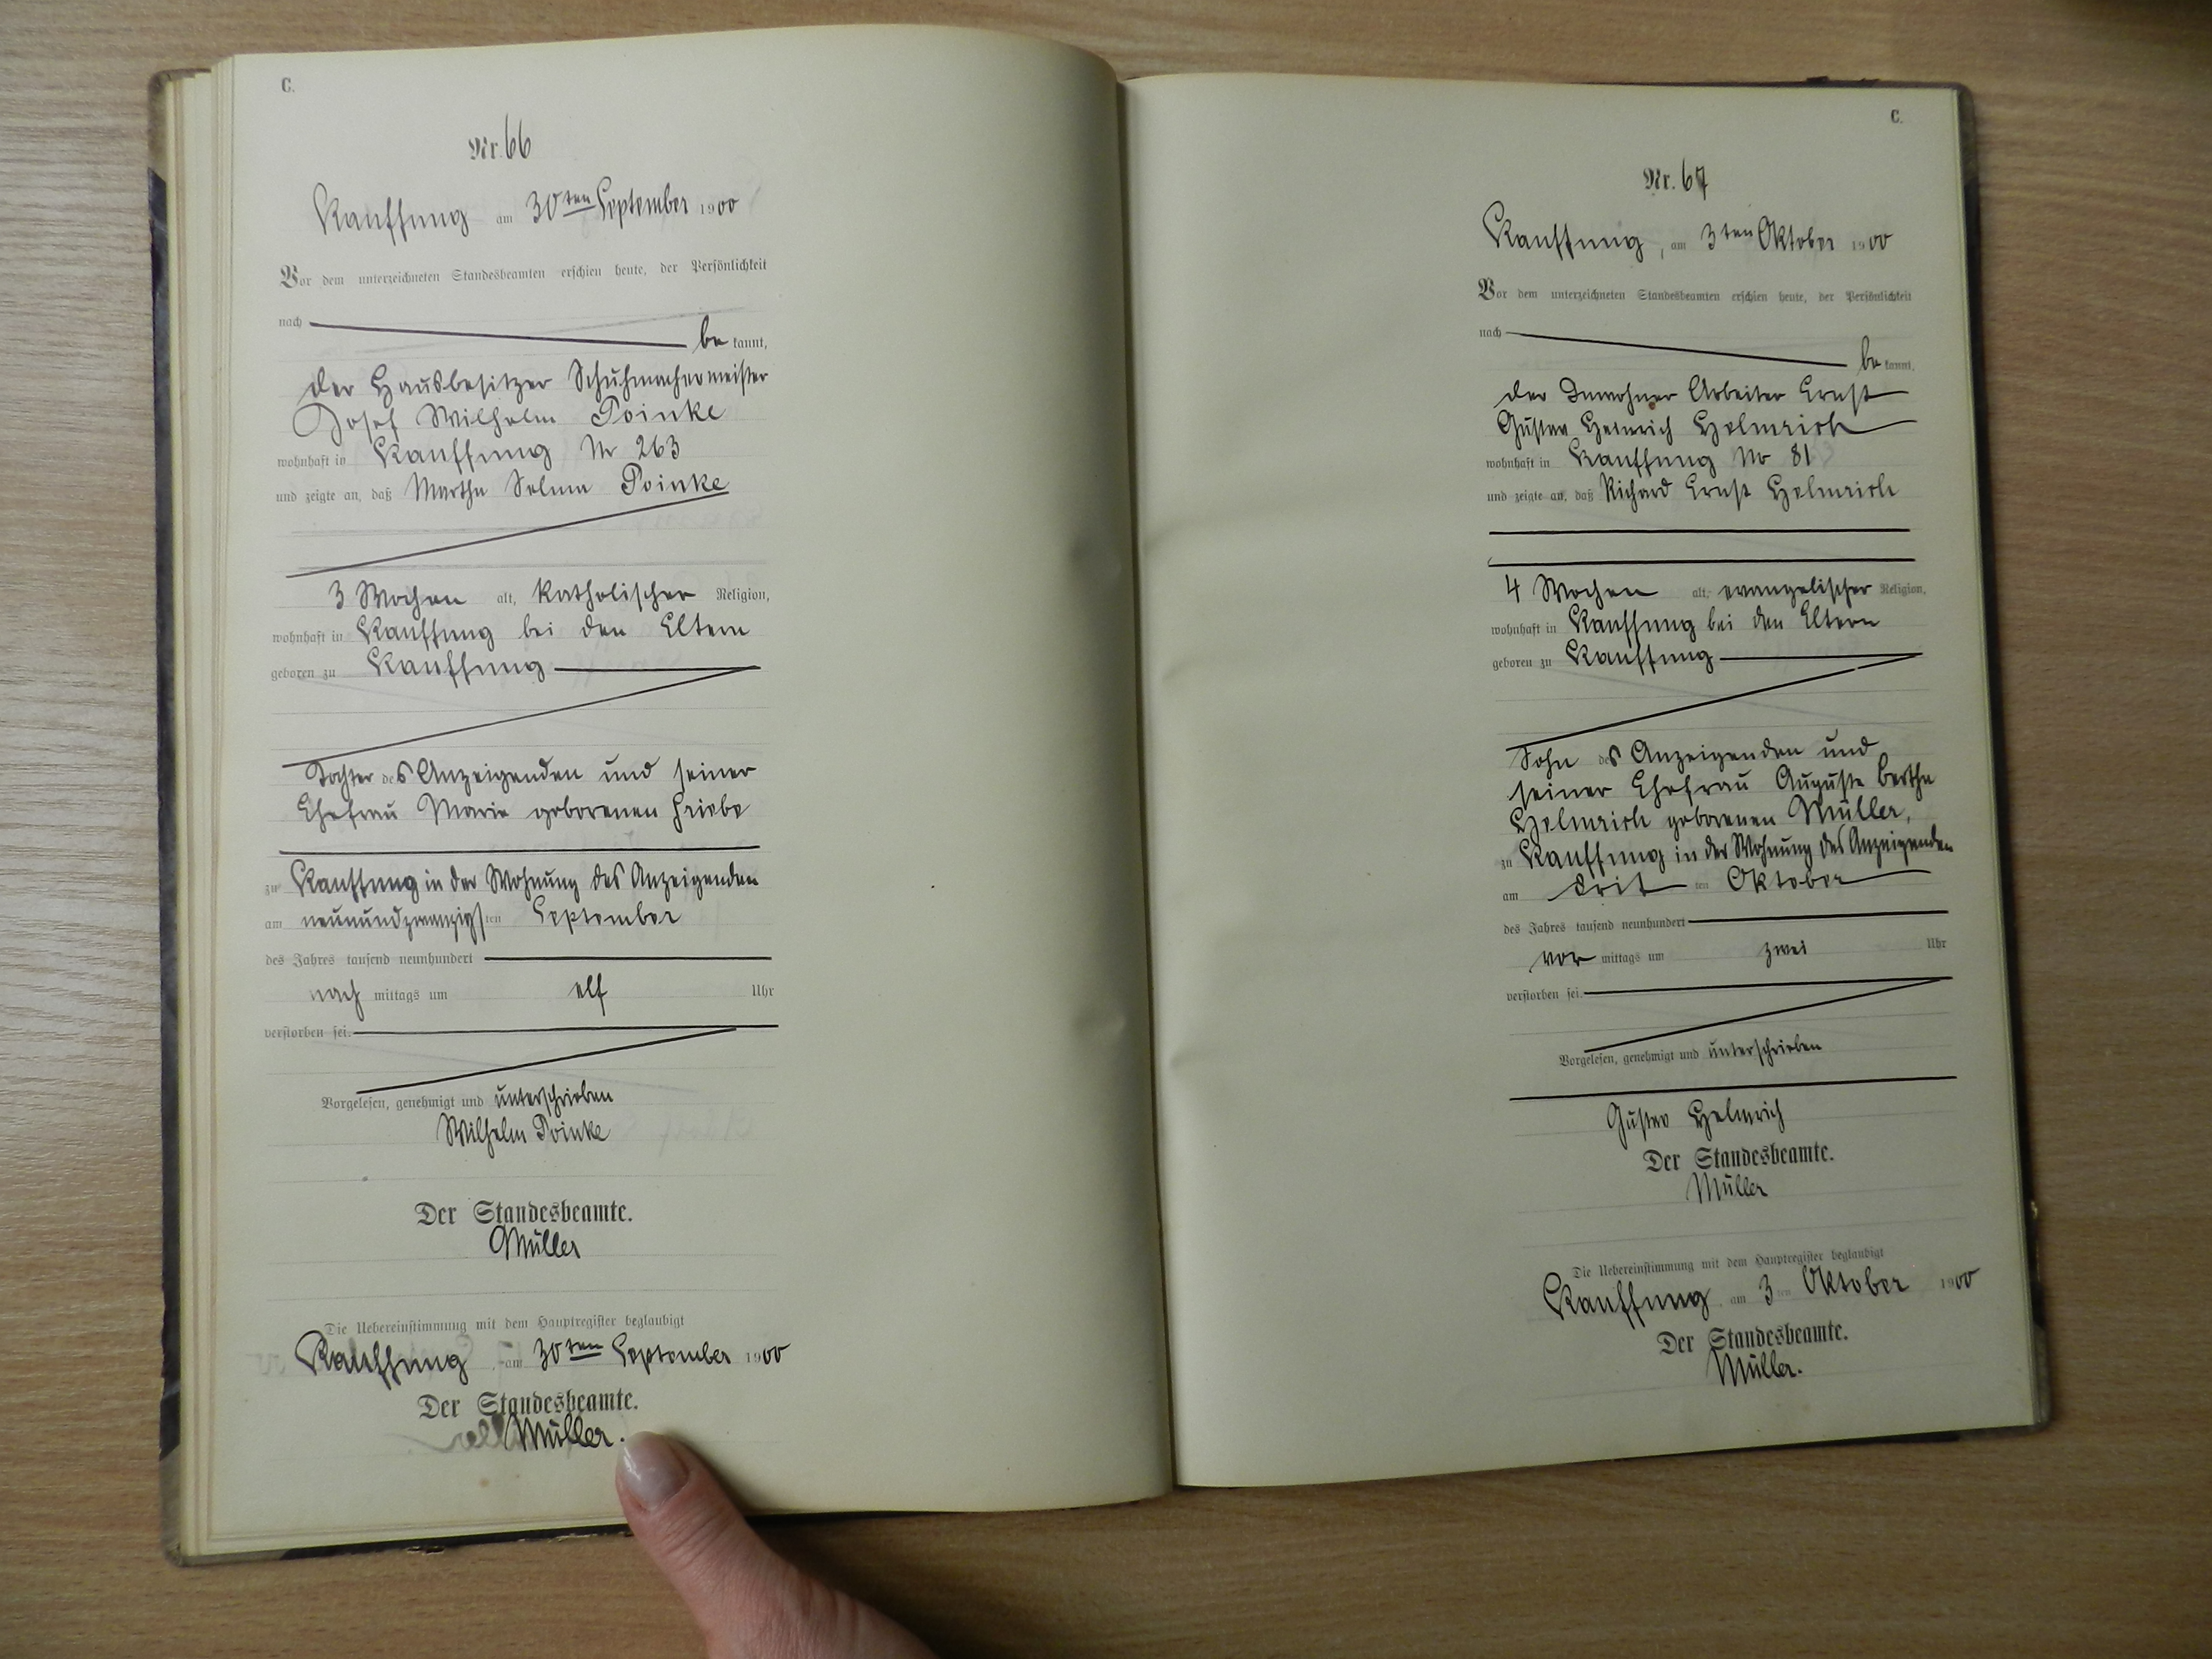 C.
Nr. 66
Kauffung am 30ten September 1900
Vor dem unterzeichneten Standesbeamten erschien heute, der Persönlichkeit
nach be kannt,
der Hausbesitzer Schuhmachermeister
Josef Wilhelm Poinke
wohnhaft in Kauffung Nr 263
und zeigte an, daß Martha Selma Poinke
3 Wochen alt, katholischer Religion,
wohnhaft in Kauffung bei den Eltern
geboren zu Kauffung
Tochter des Anzeigenden und seiner
Ehefrau Marie geborenen Friebe
zu Kauffung in der Wohnung des Anzeigenden
am neunundzwanzigsten September
des Jahres tausend neunhundert
nach mittags um elf Uhr
verstorben sei.
Vorgelesen, genehmigt und unterschrieben
Wilhelm Poinke
Der Standesbeamte.
Müller
Die Uebereinstimmung mit dem Hauptregister beglaubigt
Kauffung, am 30ten September 1900
Der Standesbeamte.
Müller.
C.
Nr. 67
Kauffung, am 3ten Oktober 1900
Vor dem unterzeichneten Standesbeamten erschien heute, der Persönlichkeit
nach be kannt,
der Inwohner Arbeiter Ernst
Gustav Heinrich Helmrich
wohnhaft in Kauffung No 81
und zeigte an, daß Richard Ernst Helmrich
4 Wochen alt, evangelischer Religion,
wohnhaft in Kauffung bei den Eltern
geboren zu Kauffung
Sohn des Anzeigenden und
seiner Ehefrau Auguste Bertha
Helmrich geborenen Müller,
zu Kauffung in der Wohnung des Anzeigenden
am drit ten Oktober
des Jahres tausend neunhundert
vor mittags um zwei Uhr
verstorben sei.
Vorgelesen, genehmigt und unterschrieben
Gustav Helmrich
Der Standesbeamte.
Müller
Die Uebereinstimmung mit dem Hauptregister beglaubigt
Kauffung, am 3ten Oktober 1900
Der Standesbeamte.
Müller.